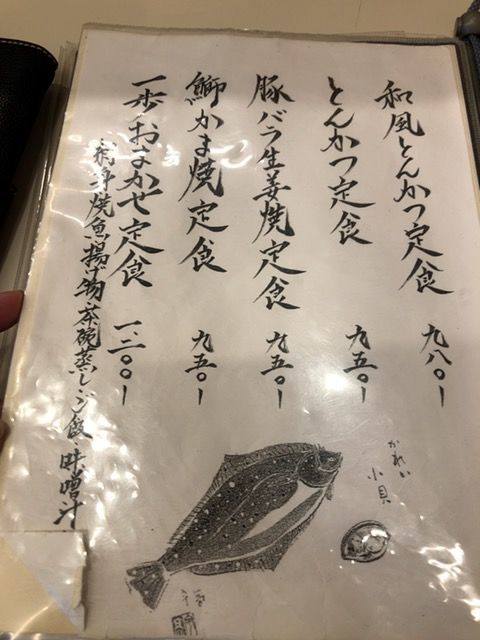 和風とんかつ定食 九八〇ー
とんかつ定食 九五〇ー
豚バラ生姜焼定食 九五〇ー
鰤かま焼定食 九五〇ー
一歩おまかせ定食 一、二〇〇ー
刺身焼魚揚げ物・茶碗蒸し・ご飯・味噌汁
かれい
小貝